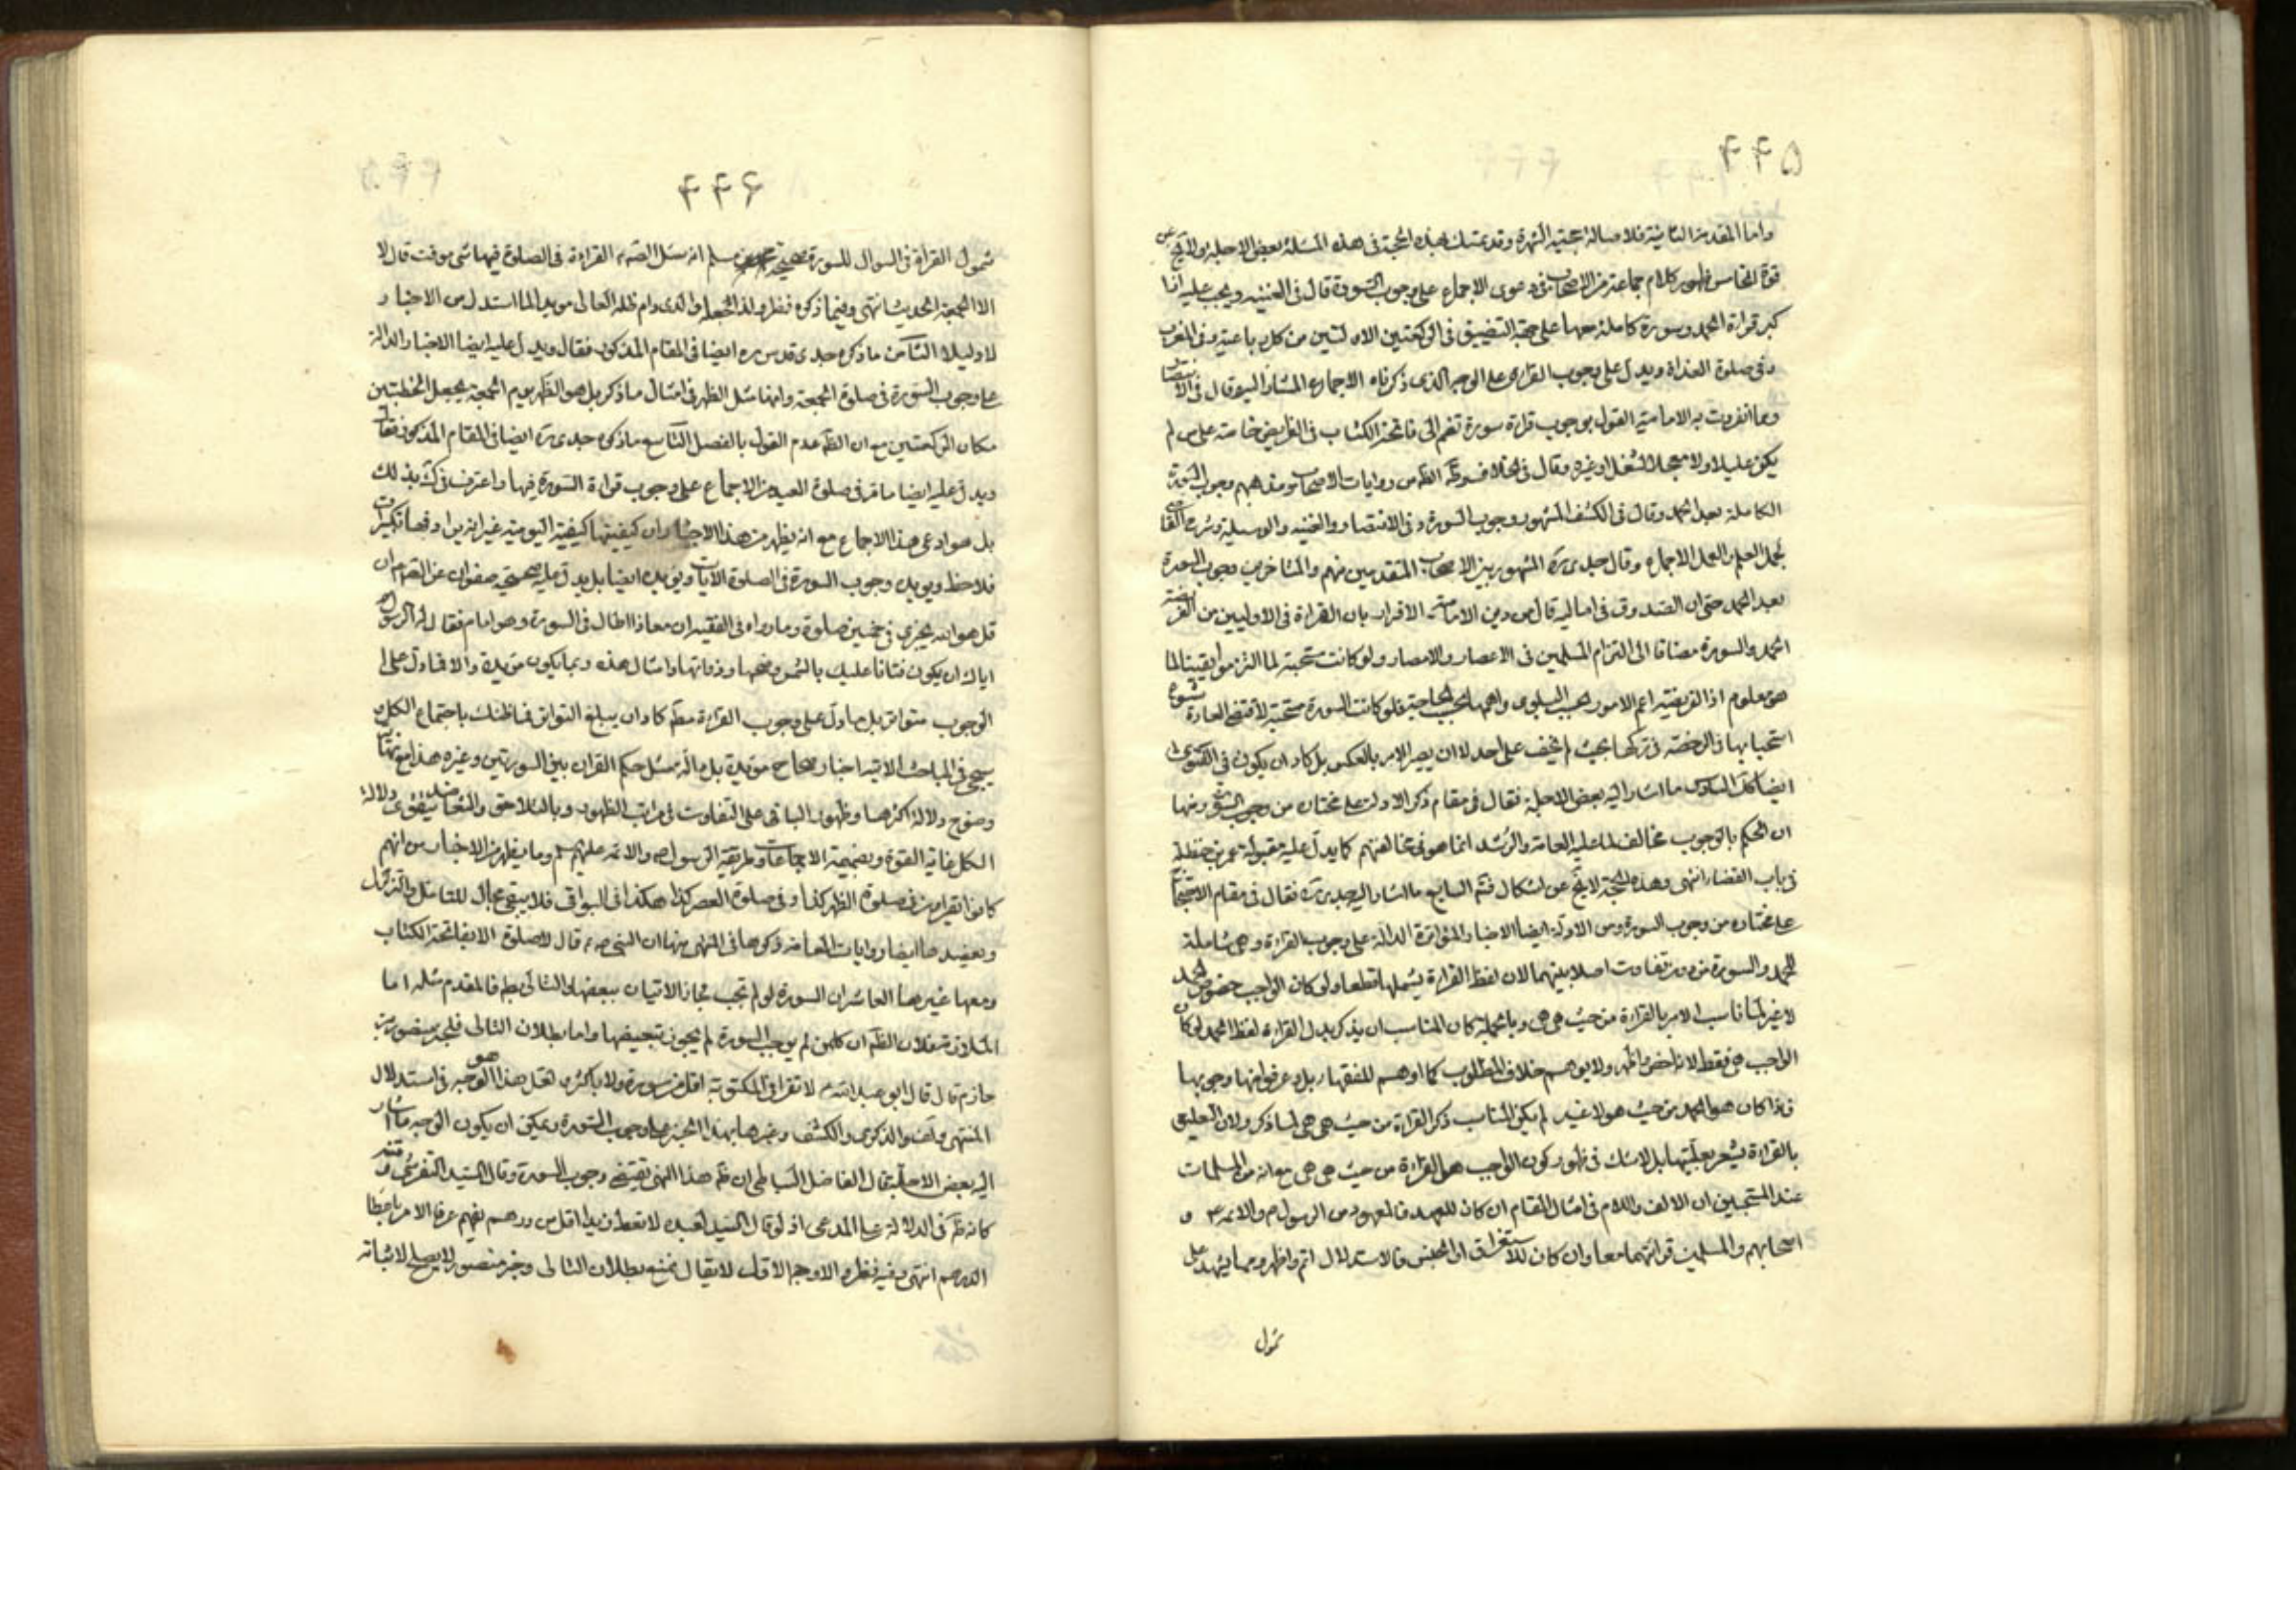 ۴۴۵
واما المقدمة الثانية فلاصالة حجية الشهرة وقد تمسك بهذه الحجة فى هذه المسئلة بعض الاجلة ولا يخ عن
قوة الخامس ظهور كلام جماعة من الاصحاب فى دعوى الاجماع على وجوب السورة قال فى الغنية ويجب عليه اذا
كبر قراءة الحمد وسورة كاملة معها على جهة التضييق فى الركعتين الاولتين من كل رباعية وفى المغرب
وفى صلوة الغداة ويدل على وجوب القراءة على الوجه الذى ذكرناه الاجماع المشار اليه وقال فى الانتصار
ومما انفردت به الامامية القول بوجوب قراءة سورة تضم الى فاتحة الكتاب فى الفرايض خاصة على من لم
يكن عليلا ولا معجلا لشغل او غيره وقال فى الخلاف الظ من روايات الاصحاب ومذاهبهم وجوب السورة
الكاملة بعد الحمد وقال فى الكشف المشهور وجوب السورة وفى الانتصار والغنية والوسيلة وشرح القاضى
لجمل العلم والعمل الاجماع وقال جدى ره المشهور بين الاصحاب المتقدمين منهم والمتاخرين وجوب السورة
بعد الحمد حتى ان الصدوق فى اماليه قال من دين الامامية الاقرار بان القراءة فى الاوليين من الفريضة
الحمد والسورة مضافا الى التزام المسلمين فى الاعصار والامصار ولو كانت مستحبة لما التزموا بقيتها لما
هو معلوم اذ الفريضة اعم الامور بحسب البلوى واهمها بحسب الحاجة فلو كانت السورة مستحبة لاقتضى العادة شهرة
استحبابها والرخصة فى تركها بحيث لم يخف على احد لا ان يصير الامر بالعكس بل كاد ان يكون فى الفتوى
ايضا كك السادس ما اشار اليه بعض الاجلة فقال فى مقام ذكر الادلة على مختاره من وجوب السورة ومنها
ان الحكم بالوجوب مخالف لما عليه العامة والرشد انما هو فى مخالفتهم كما يدل عليه مقبولة عمر بن حنظلة
فى باب القضاء انتهى وهذه الحجة لا يخ عن اشكال فتم السابع ما اشار اليه جدى ره فقال فى مقام الاحتجاج
على مختاره من وجوب السورة ومن الادلة ايضا الاخبار المتواترة الدالة على وجوب القراءة وهى شاملة
للحمد والسورة من دون تفاوت اصلا بينهما لان لفظ القراءة يشملها قطعا ولو كان الواجب خصوص الحمد
لا غير لما ناسب الامر بالقراءة من حيث هى هى وبالجملة كان المناسب ان يذكر بدل القراءة لفظ الحمد لو كان
الواجب هى فقط لانه اخص واظهر ولا يوهم خلاف المطلوب كما اوهم للفقهاء بل وعرفوا منها وجوبها
فاذا كان هو الحمد من حيث هو لا غير لم يكن المناسب ذكر القراءة من حيث هى هى لما ذكر ولان التعليق
بالقراءة يشعر بعليتها بل لا شك فى ظهور كون الواجب هو القراءة من حيث هى هى مع انه من المسلمات
عند المتتبعين ان الالف واللام فى امثال المقام ان كان للعهد فالمعهود من الرسول ص والائمة ع و
اصحابهم والمسلمين قرائتهما معا وان كان للاستغراق او الجنس فالاستدلال اتم واظهر ومما يشهد على
شمول
۴۴۶
شمول القراءة فى السؤال للسورة صحيحة محمد بن مسلم انه سئل الصم القراءة فى الصلوة فيها شى موقت قال لا
الا الجمعة الحديث انتهى وفيما ذكره نظر ولذا جعله والدى دام ظله العالى مويدا لما استدل من الاخبار
لا دليلا الثامن ما ذكره جدى قدس سره ايضا فى المقام المذكور فقال ويدل عليه ايضا الاخبار الدالة
على وجوب السورة فى صلوة الجمعة وانها مثل الظهر فى امثال ما ذكر بل هو الظهر يوم الجمعة يجعل الخطبتين
مكان الركعتين مع ان الظ عدم القول بالفصل التاسع ما ذكره جدى ره ايضا فى المقام المذكور فقال
ويدل عليه ايضا ما مر فى صلوة العيد من الاجماع على وجوب قراءة السورة فيها واعترف فى ك بذلك
بل هو ادعى هذا الاجماع مع انه يظهر من هذا الاخبار ان كيفيتها كيفية اليومية غير انه يزاد فيها تكبيرات
فلاحظ ويويده وجوب السورة فى الصلوة الايات ويويده ايضا بل يدل عليه صحيحة صفوان عن الصم ان
قل هو الله يجزى فى خمسين صلوة وما رواه فى الفقيه ان معاذا اطال فى السورة وهو امام فقال له الرسول ص
اياك ان يكون فتانا عليك بالشمس وضحها وذواتها وامثال هذه ربما يكون مويدة والا فما دل على
الوجوب متواتر بل ما دل على وجوب القراءة مطم كاد ان يبلغ التواتر فما ظنك باجتماع الكل و
سيجئ فى المباحث الاتية اخبار صحاح مويدة بل دالة مثل حكم القران بين السورتين وغيره هذا مع
وضوح دلالة اكثرها وظهور الباقى على التفاوت فى مراتب الظهور وبالتلاحق والتعاضد يتقوى دلالة
الكل غاية القوة وبضميمة الاجماعات وطريقة الرسول ص والائمة عليهم سلم وما يظهر من الاخبار من انهم
كانوا يقراون فى صلوة الظهر كذا وفى صلوة العصر كذا هكذا فى البواقى فلا يبقى مجال للتامل والتزلزل
ويعضدها ايضا روايات العامة ذكروها فى المنتهى منها ان النبى ص م قال لا صلوة الا بفاتحة الكتاب
ومعها غيرها العاشر ان السورة لو لم تجب لجاز الاتيان ببعضها والتالى بط فالمقدم مثله اما
الملازمة فلان الظ ان كل من لم يوجب السورة لم يجوز تبعيضها واما بطلان التالى فلخبر منصور بن
حازم قال قال ابو عبد الله ع لا تقرا فى المكتوبة اقل من سورة ولا باكثر و لعل هذا هو الوجه فى استدلال
المنتهى والذكرى والكشف وغيرها بهذا الخبر على وجوب السورة ويمكن ان يكون الوجه ما اشار
اليه بعض الاجلة فقال الفاضل ان ظ هذا النهى يقتضى وجوب السورة وقال السيد التفرشى
كانه ظ فى الدلالة على المدعى اذ لو قال السيد لعبده لا تعط زيدا اقل من درهم يفهم عرفا الامر باعطا
الدرهم انتهى وفيه نظر والاوجه الاول لا يقال نمنع بطلان التالى وخبر منصور لا يصلح لاثباته